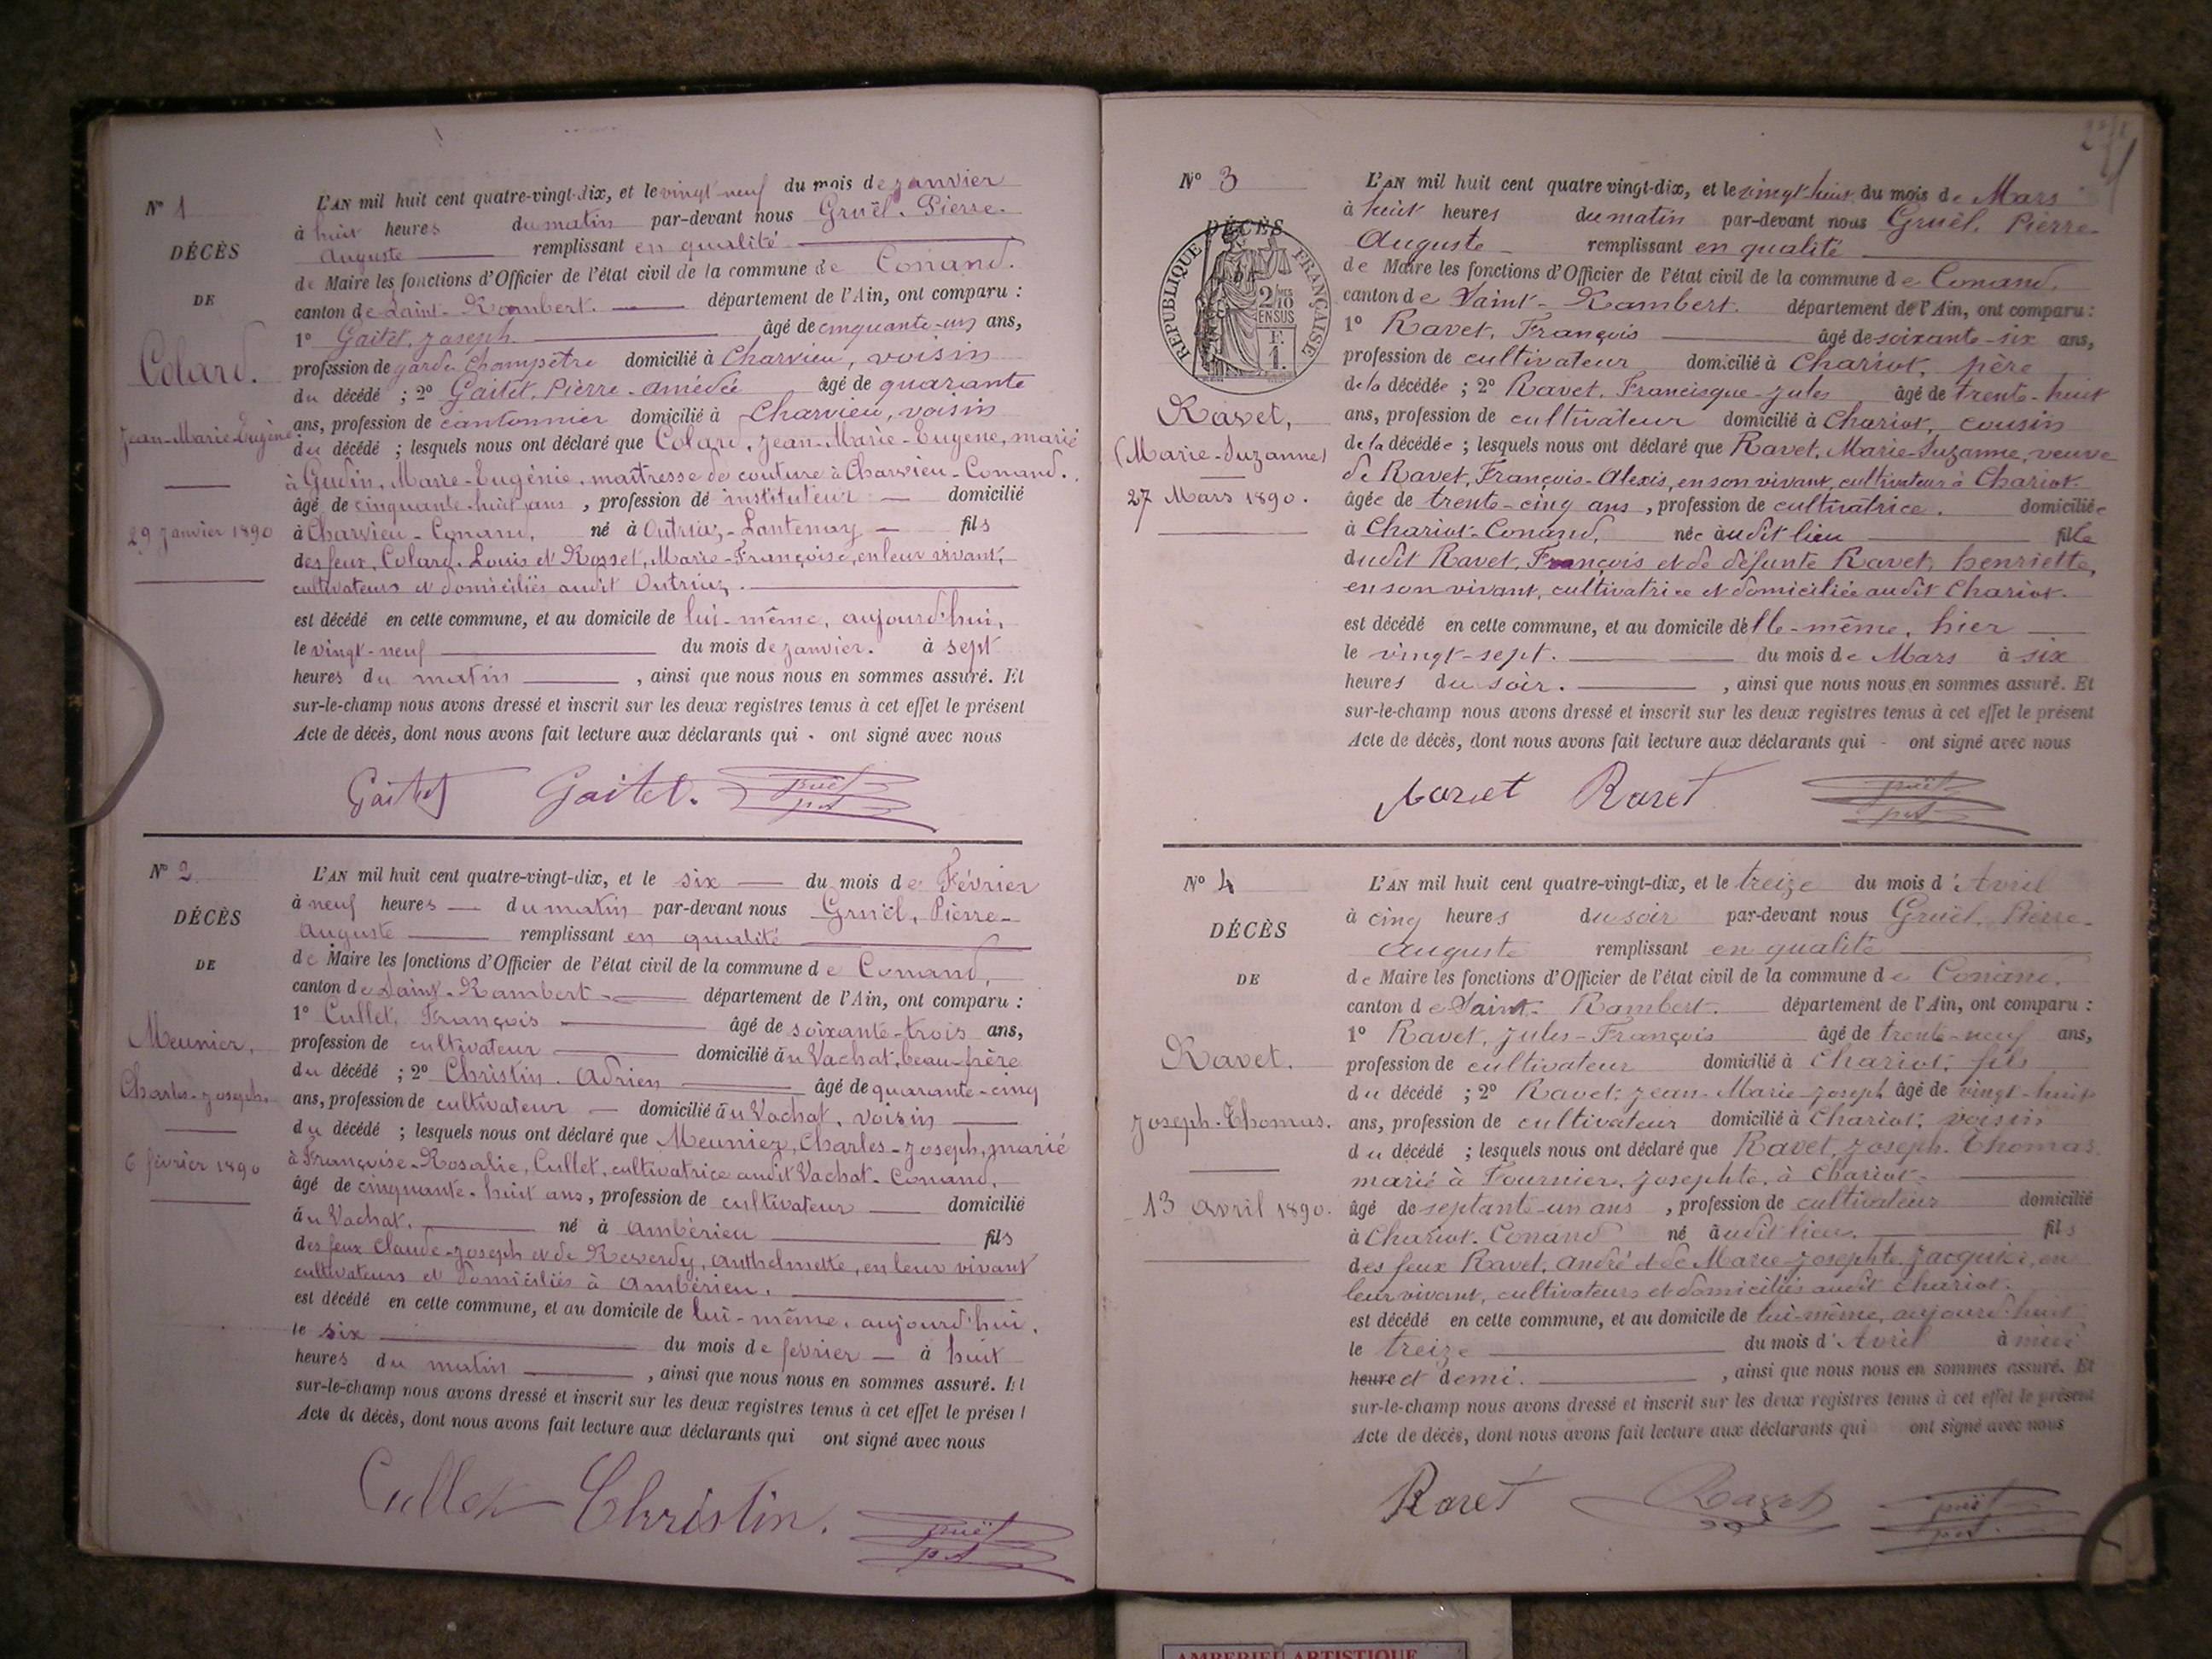 N° 1
DÉCÈS
DE
Colard.
Jean-Marie-Eugène
29 Janvier 1890
L'AN mil huit cent quatre-vingt-dix, et le vingt-neuf du mois de Janvier
à huit heures du matin par-devant nous Gruël. Pierre-
Auguste remplissant en qualité
de Maire les fonctions d'Officier de l'état civil de la commune de Conand.
canton de Saint-Rambert. département de l'Ain, ont comparu :
1° Gaitet, Joseph. âgé de cinquante-un ans,
profession de garde champêtre domicilié à Charvieu, voisin
du décédé ; 2° Gaitet, Pierre-Amédée âgé de quarante
ans, profession de cantonnier domicilié à Charvieu, voisin
du décédé ; lesquels nous ont déclaré que Colard, Jean-Marie-Eugène, marié
à Gudin, Marie-Eugénie, maîtresse de couture à Charvieu-Conand.
âgé de cinquante-huit ans, profession de instituteur domicilié
à Charvieu-Conand, né à Outriaz-Lantenay fils
des feux, Colard, Louis et Rosset, Marie-Françoise, en leur vivant,
cultivateurs et domiciliés audit Outriaz.
est décédé en cette commune, et au domicile de lui-même, aujourd'hui,
le vingt-neuf du mois de Janvier. à sept
heures du matin, ainsi que nous nous en sommes assuré. Et
sur-le-champ nous avons dressé et inscrit sur les deux registres tenus à cet effet le présent
Acte de décès, dont nous avons fait lecture aux déclarants qui - ont signé avec nous
Gaitet Gaitet. Gruël
N° 2
DÉCÈS
DE
Meunier,
Charles-Joseph.
6 février 1890
L'AN mil huit cent quatre-vingt-dix, et le six du mois de Février
à neuf heures du matin par-devant nous Gruël, Pierre-
Auguste remplissant en qualité
de Maire les fonctions d'Officier de l'état civil de la commune de Conand,
canton de Saint-Rambert département de l'Ain, ont comparu :
1° Cullet, François âgé de soixante-trois ans,
profession de cultivateur domicilié au Vachat, beau-frère
du décédé ; 2° Christin. Adrien âgé de quarante-cinq
ans, profession de cultivateur domicilié au Vachat, voisin
du décédé ; lesquels nous ont déclaré que Meunier, Charles-Joseph, marié
à Françoise-Rosalie, Cullet, cultivatrice audit Vachat-Conand,
âgé de cinquante-huit ans, profession de cultivateur domicilié
au Vachat. né à Ambérieu fils
des feux Claude-Joseph et de Reverdy, Anthelmette, en leur vivant
cultivateurs et domiciliés à Ambérieu.
est décédé en cette commune, et au domicile de lui-même, aujourd'hui,
le six du mois de février à huit
heures du matin, ainsi que nous nous en sommes assuré. Et
sur-le-champ nous avons dressé et inscrit sur les deux registres tenus à cet effet le présent
Acte de décès, dont nous avons fait lecture aux déclarants qui ont signé avec nous
Cullet Christin. Gruël
N° 3
DÉCÈS
DE
RÉPUBLIQUE FRANÇAISE
2/10 EN SUS
1 F.
Ravet,
(Marie-Suzanne)
27 Mars 1890.
L'AN mil huit cent quatre vingt-dix, et le vingt-huit du mois de Mars
à huit heures du matin par-devant nous Gruël, Pierre-
Auguste remplissant en qualité
de Maire les fonctions d'Officier de l'état civil de la commune de Conand,
canton de Saint-Rambert. département de l'Ain, ont comparu :
1° Ravet, François âgé de soixante-six ans,
profession de cultivateur domicilié à Chariot, père
de la décédée ; 2° Ravet, Francisque-Jules âgé de trente-huit
ans, profession de cultivateur domicilié à Chariot, cousin
de la décédée ; lesquels nous ont déclaré que Ravet, Marie-Suzanne, veuve
de Ravet, François-Alexis, en son vivant, cultivateur à Chariot.
âgée de trente-cinq ans, profession de cultivatrice. domiciliée
à Chariot-Conand, née audit lieu fille
dudit Ravet, François et de défunte Ravet, henriette,
en son vivant, cultivatrice et domiciliée audit Chariot.
est décédé en cette commune, et au domicile d'elle-même, hier
le vingt-sept. du mois de Mars à six
heures du soir., ainsi que nous nous en sommes assuré. Et
sur-le-champ nous avons dressé et inscrit sur les deux registres tenus à cet effet le présent
Acte de décès, dont nous avons fait lecture aux déclarants qui - ont signé avec nous
Ravet Ravet Gruël
N° 4
DÉCÈS
DE
Ravet.
Joseph-Thomas.
13 avril 1890.
L'AN mil huit cent quatre-vingt-dix, et le treize du mois d'Avril
à cinq heures du soir par-devant nous Gruël, Pierre-
Auguste remplissant en qualité
de Maire les fonctions d'Officier de l'état civil de la commune de Conand,
canton de Saint-Rambert. département de l'Ain, ont comparu :
1° Ravet, Jules-François âgé de trente-neuf ans,
profession de cultivateur domicilié à Chariot, fils
du décédé ; 2° Ravet, Jean-Marie-Joseph âgé de vingt-huit
ans, profession de cultivateur domicilié à Chariot, voisin
du décédé ; lesquels nous ont déclaré que Ravet, Joseph-Thomas
marié à Fournier, Josephte, à Chariot.
âgé de septante-un ans, profession de cultivateur domicilié
à Chariot-Conand né audit lieu. fils
des feux Ravet, André et de Marie-Josephte Jacquier, en
leur vivant, cultivateurs et domiciliés audit Chariot.
est décédé en cette commune, et au domicile de lui-même, aujourd'hui
le treize du mois d'Avril à midi
heure et demi., ainsi que nous nous en sommes assuré. Et
sur-le-champ nous avons dressé et inscrit sur les deux registres tenus à cet effet le présent
Acte de décès, dont nous avons fait lecture aux déclarants qui ont signé avec nous
Ravet Ravet Gruël
AMBERIEU ARTISTIQUE